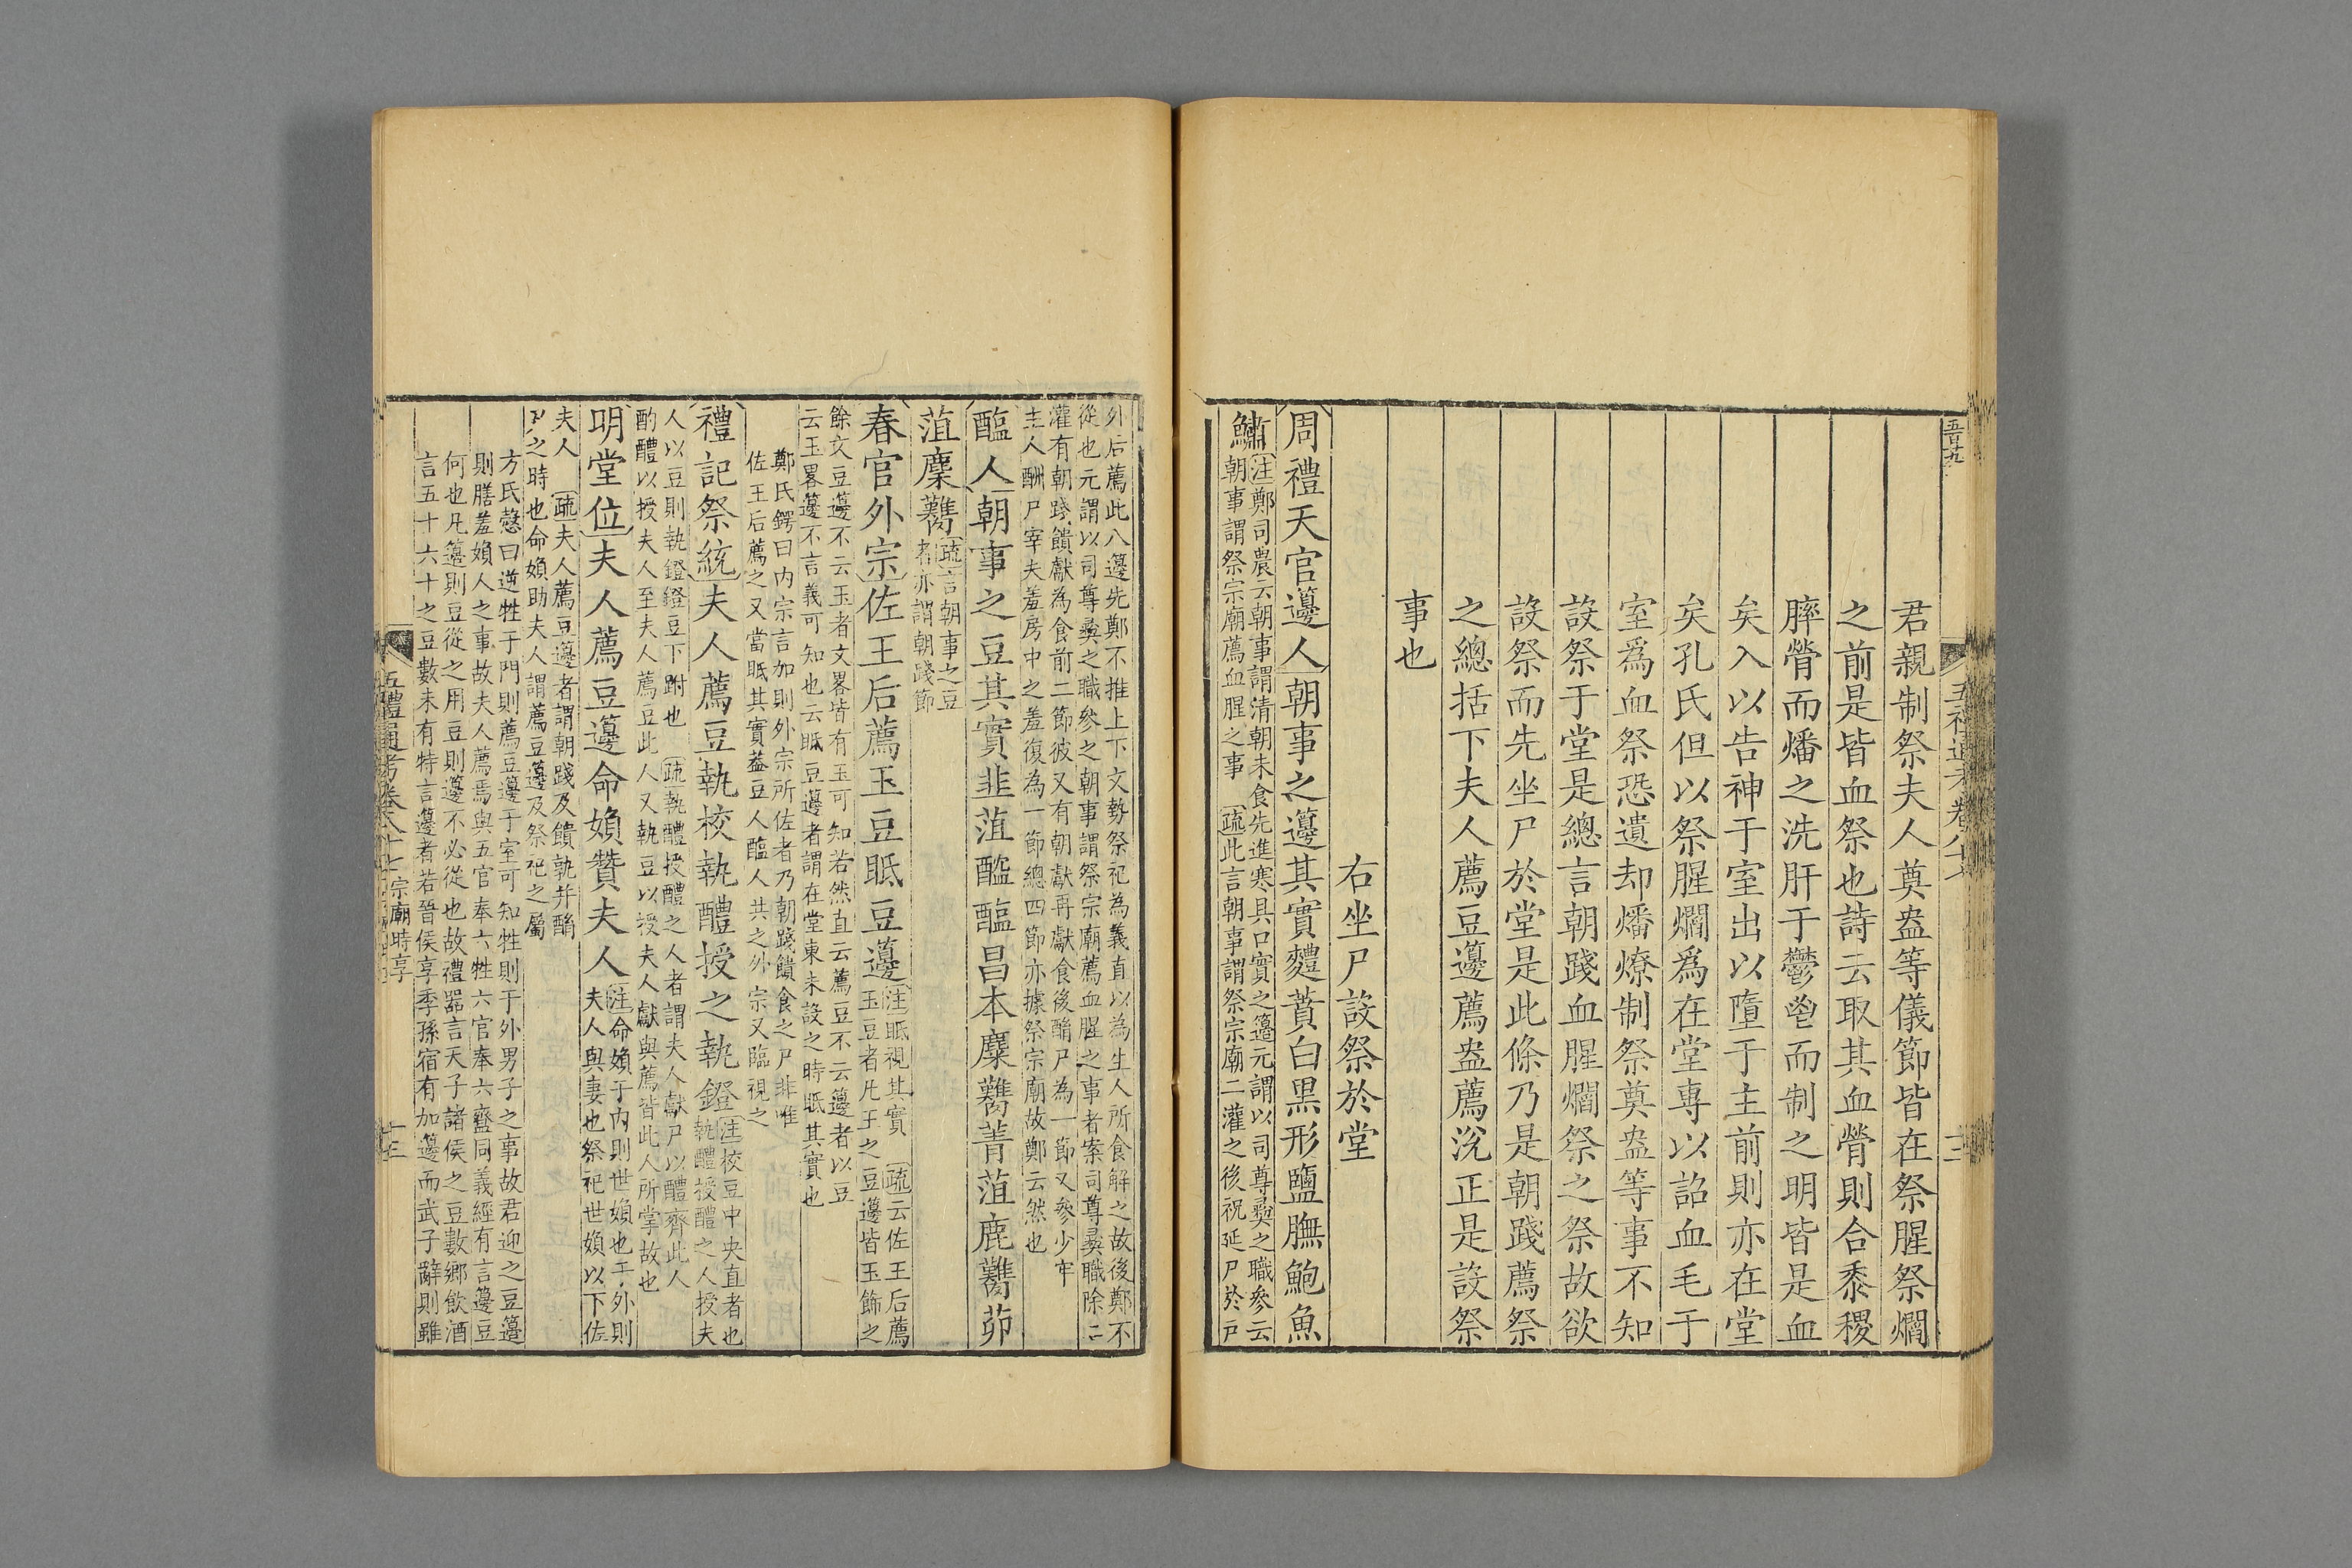 君親制祭夫人奠盎等儀節皆在祭腥祭爓
之前是皆血祭也詩云取其血膋則合黍稷
膟膋而燔之洗肝于鬱鬯而制之明皆是血
矣入以告神于室出以墮于主前則亦在堂
矣孔氏但以祭腥爓爲在堂專以詔血毛于
室爲血祭恐遺却燔燎制祭奠盎等事不知
設祭于堂是總言朝踐血腥爓祭之祭故欲
設祭而先坐尸於堂是此條乃是朝踐薦祭
之總括下夫人薦豆籩薦盎薦涗正是設祭
事也
右坐尸設祭於堂
周禮天官籩人朝事之籩其實麷蕡白黑形鹽膴鮑魚
鱐注鄭司農云朝事謂清朝未食先進寒具口實之籩元謂以司尊彝之職參云
朝事謂祭宗廟薦血腥之事 疏此言朝事謂祭宗廟二灌之後祝延尸於戶
外后薦此八籩先鄭不推上下文勢祭祀為義直以為生人所食解之故後鄭不
從也元謂以司尊彝之職參之朝事謂祭宗廟薦血腥之事者案司尊彝職除二
灌有朝踐饋獻為食前二節彼又有朝獻再獻食後酳尸為一節又參少牢
主人酬尸宰夫羞房中之羞復為一節總四節亦據祭宗廟故鄭云然也
醢人朝事之豆其實韭菹醓醢昌本麋臡菁菹鹿臡茆
菹麋臡疏言朝事之豆
者亦謂朝踐節
春官外宗佐王后薦玉豆眡豆籩注眡視其實 疏云佐王后薦
玉豆者凡王之豆籩皆玉飾之
餘文豆籩不云玉者文畧皆有玉可知若然直云薦豆不云籩者以豆
云玉畧籩不言義可知也云眡豆籩者謂在堂東未設之時眡其實也
鄭氏鍔曰内宗言加則外宗所佐者乃朝踐饋食之尸非唯
佐王后薦之又當眡其實葢豆人醢人共之外宗又臨視之
禮記祭統夫人薦豆執校執醴授之執鐙注校豆中央直者也
執醴授醴之人授夫
人以豆則執鐙鐙豆下跗也 疏執醴授醴之人者謂夫人獻尸以醴齊此人
酌醴以授夫人至夫人薦豆此人又執豆以授夫人獻與薦皆此人所掌故也
明堂位夫人薦豆籩命婦贊夫人注命婦于内則世婦也于外則
夫人與妻也祭祀世婦以下佐
夫人 疏夫人薦豆籩者謂朝踐及饋孰并酳
尸之時也命婦助夫人謂薦豆籩及祭祀之屬
方氏慤曰逆牲于門則薦豆籩于室可知牲則于外男子之事故君迎之豆籩
則膳羞婦人之事故夫人薦焉與五官奉六牲六官奉六齍同義經有言籩豆
何也凡籩則豆從之用豆則籩不必從也故禮器言天子諸侯之豆數鄉飲酒
言五十六十之豆數未有特言籩者若晉侯享季孫宿有加籩而武子辭則雖
五禮通考卷八十七 宗廟時享
十三